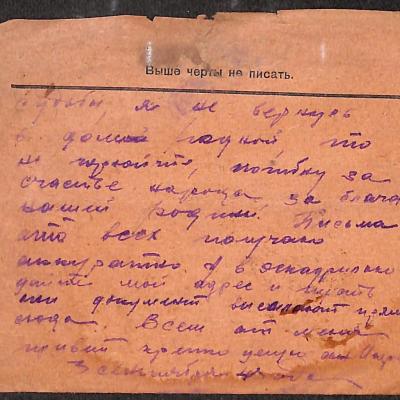 Выше черты не писать.
я не вернусь
в дом родной, то
не горюйте, погибну за
счастье народа, за благо
нашей Родины. Письма
от всех получаю
аккуратно. А в эскадрилью
дайте мой адрес и пусть
документ высылают прям
сюда. Всем от меня
привет крепко целую